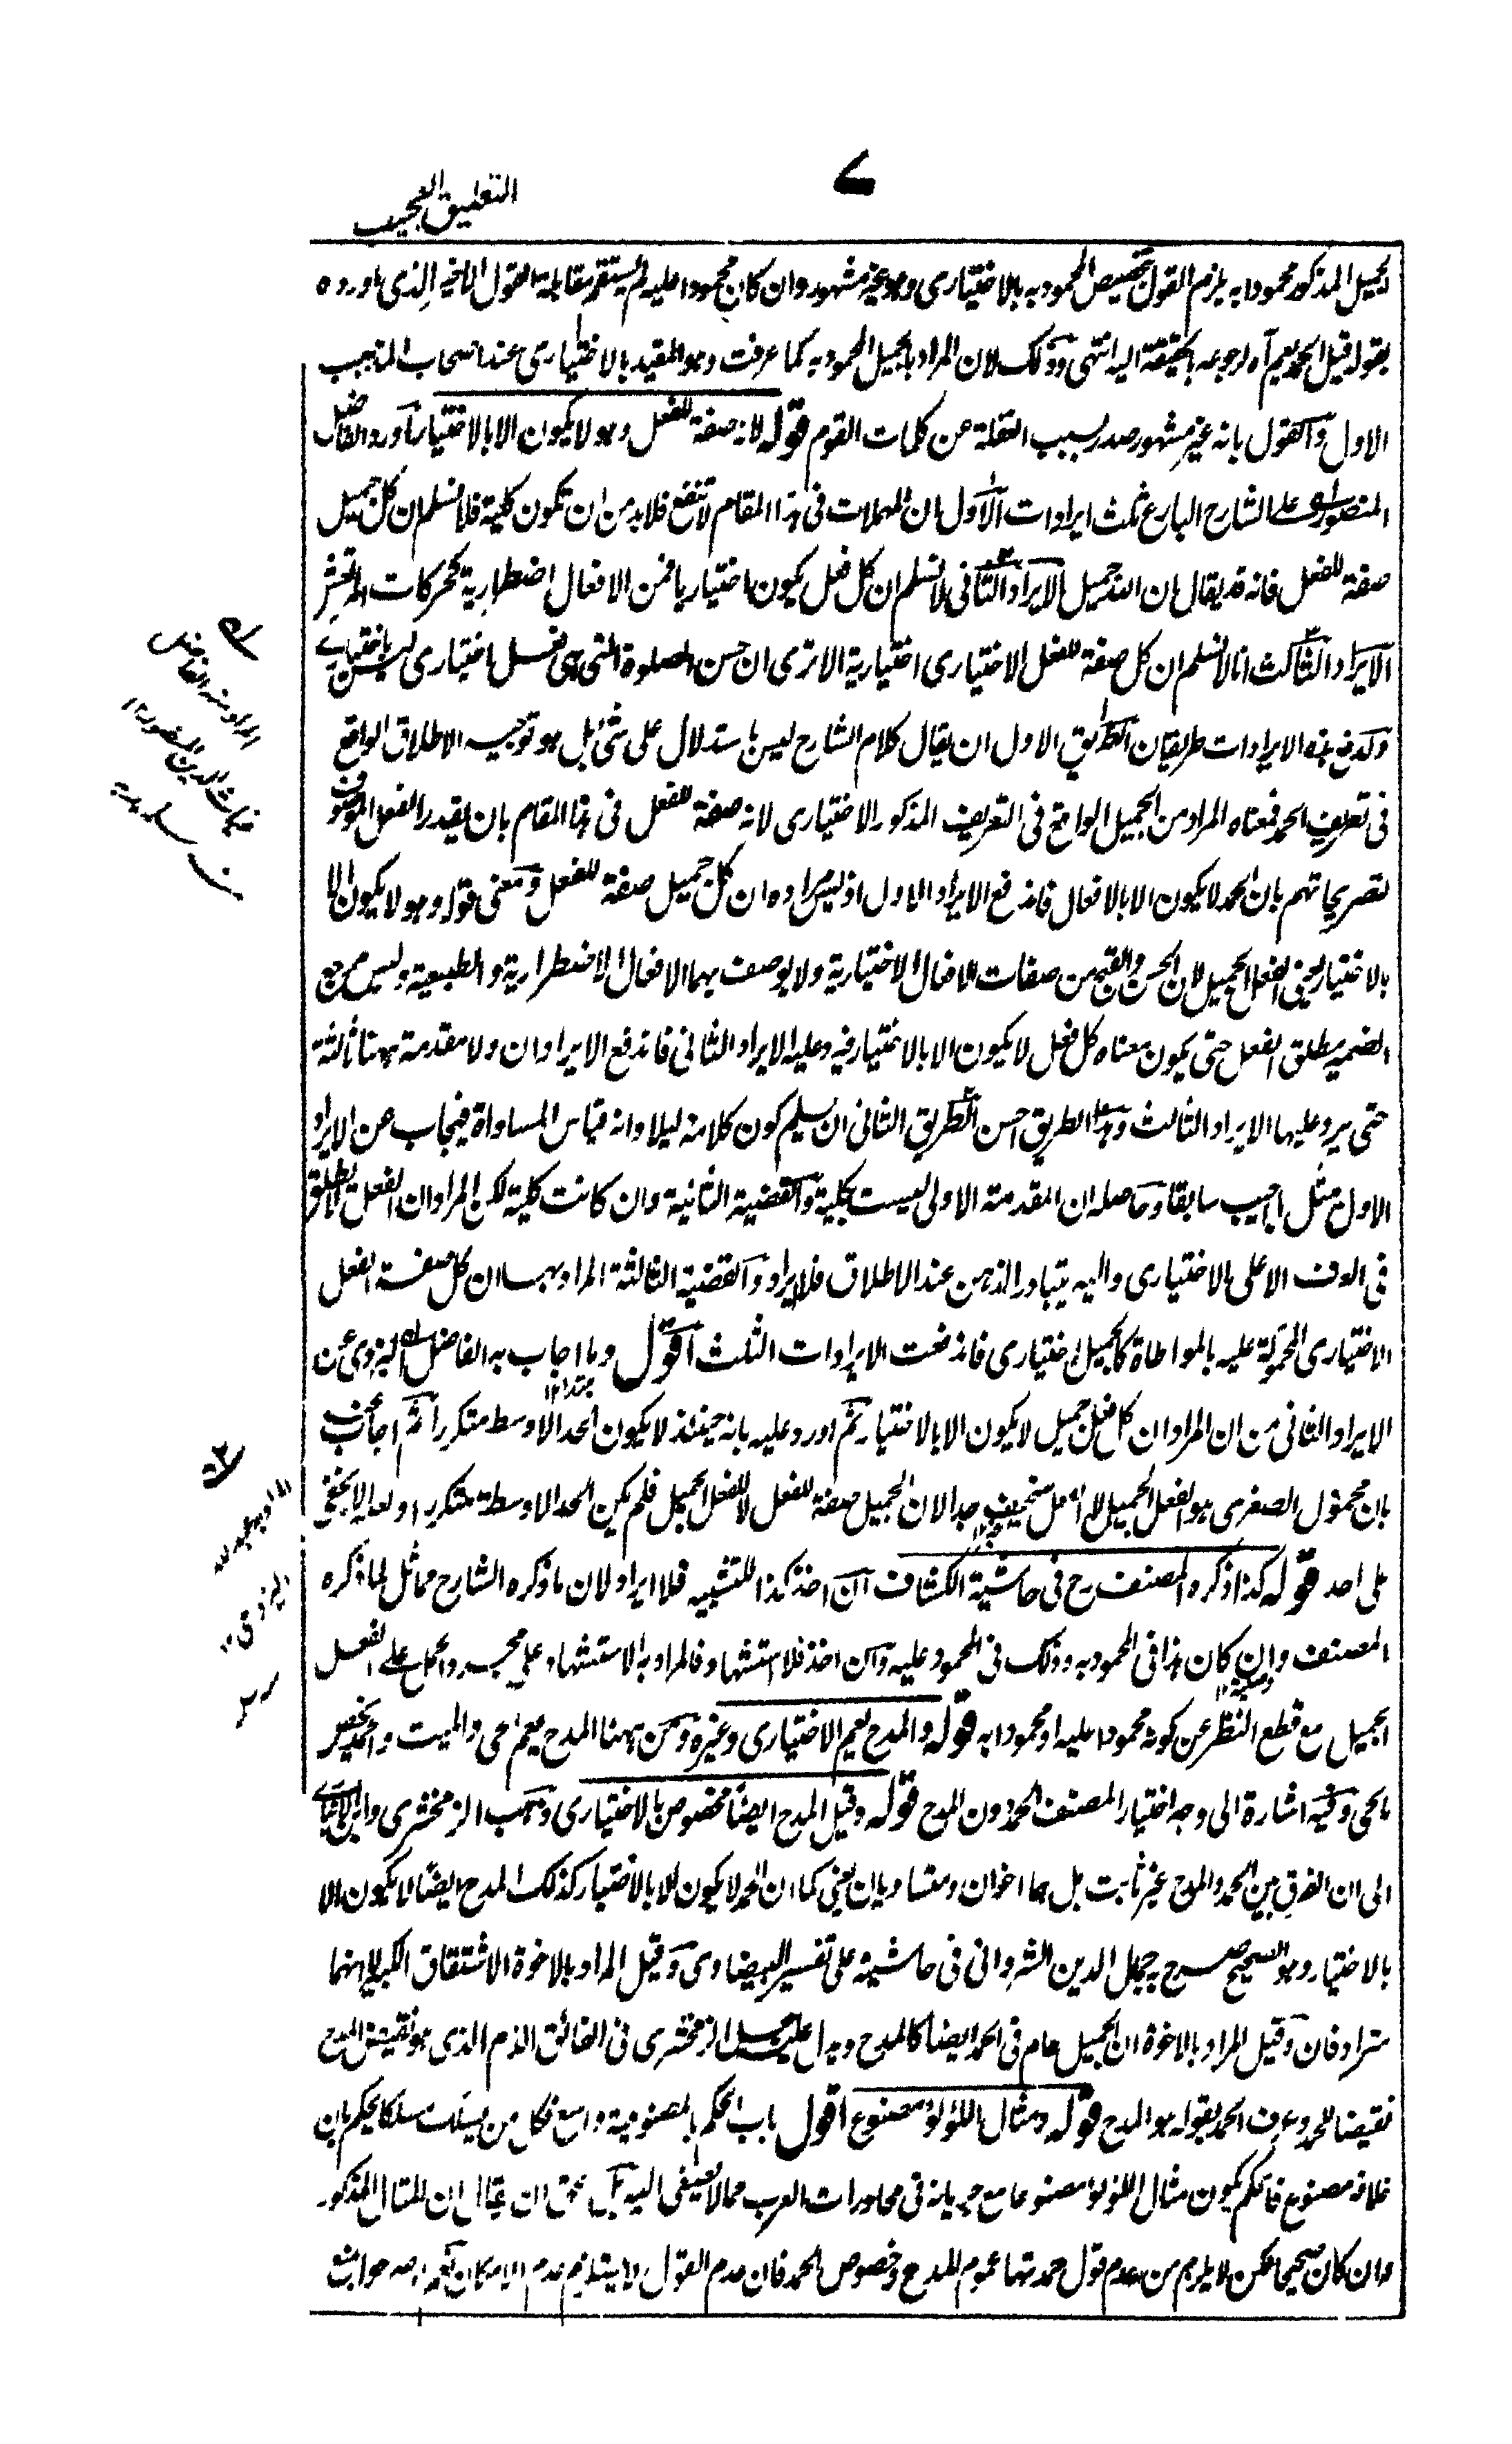 التعليق العجيب
٧
الجميل المذكور محمودا به يلزم القول بتخصيص المحمود به بالاختياري وهو غير مشهور وان كان محمودا عليه لم يستقم مقابلة القول الاخير الذي اورده
بقوله قيل الحمد يعم آه لرجوعه بالحقيقة اليه انتهى وذلك لان المراد بالجميل المحمود به كما عرفت وهو المقيد بالاختياري عند اصحاب المذهب
الاول والقول بانه غير مشهور صدر بسبب الغفلة عن كلمات القوم قوله لانه صفة للفعل وهو لا يكون الا بالاختيار اورد الفاضل
المنصوري على الشارح البارع ثلث ايرادات الاول ان المهملات في هذا المقام لا تنفع فلابد من ان تكون كلية فلا نسلم ان كل جميل
صفة للفعل فانه قد يقال ان الخد جميل الايراد الثاني لا نسلم ان كل فعل يكون اختياريا فمن الافعال اضطرارية كحركات المرتعش
الايراد الثالث انا لا نسلم ان كل صفة للفعل الاختياري اختيارية الا ترى ان حسن الصلوة التي هي فعل اختياري ليس باختياري
ولدفع هذه الايرادات طريقان الطريق الاول ان يقال كلام الشارح ليس باستدلال على شئ بل هو توجيه الاطلاق الواقع
في تعريف الحمد فمعناه المراد من الجميل الواقع في التعريف المذكور الاختياري لانه صفة للفعل في هذا المقام بان يقدر الفعل الموصوف
لتصريحاتهم بان الحمد لا يكون الا بالافعال فاندفع الايراد الاول اذ ليس مراده ان كل جميل صفة للفعل ومعنى قوله وهو لا يكون الا
بالاختيار يعني الفعل الجميل لان الحسن والقبح من صفات الافعال الاختيارية ولا يوصف بهما الافعال الاضطرارية والطبيعية وليس مرجع
الضمير مطلق الفعل حتى يكون معناه كل فعل لا يكون الا بالاختيار فيرد عليه الايراد الثاني فاندفع الايرادان ولا مقدمة ههنا ثالثة
حتى يرد عليها الايراد الثالث وهذا الطريق احسن الطريق الثاني ان يسلم كون كلامه دليلا وانه قياس المساواة فيجاب عن الايراد
الاول بمثل ما اجيب سابقا وحاصله ان المقدمة الاولى ليست بكلية والقضية الثانية وان كانت كلية لكن المراد ان الفعل لا يطلق
في العرف الا على الاختياري واليه يتبادر الذهن عند الاطلاق فلا ايراد والقضية الثالثة المراد بها ان كل صفة الفعل
الاختياري المحمولة عليه بالمواطاة كالجميل اختياري فاندفعت الايرادات الثلث اقول وما اجاب به الفاضل اليزدي عن
الايراد الثاني من ان المراد ان كل فعل جميل لا يكون الا بالاختيار ثم اورد عليه بانه حينئذ لا يكون الحد الاوسط متكررا ثم اجاب عنه
بان محمول الصغرى هو الفعل الجميل سخيف جدا لان الجميل صفة للفعل لا للفعل الجميل فلم يكن الحد الاوسط متكررا ولعله لا يخفى
على احد قوله كذا ذكره المصنف رح في حاشية الكشاف ان اخذ كذا للتشبيه فلا ايراد لان ما ذكره الشارح مماثل لما ذكره
المصنف وان كان هذا في المحمود به وذلك في المحمود عليه وان اخذ فلا استشهاد فالمراد به الاستشهاد على مجرد الحمل على الفعل
الجميل مع قطع النظر عن كونه محمودا عليه او محمودا به قوله والمدح يعم الاختياري وغيره ومن ههنا المدح يعم الحي والميت والحمد يختص
بالحي وفيه اشارة الى وجه اختيار المصنف الحمد دون المدح قوله وقيل المدح ايضا مخصوص بالاختياري وذهب الزمخشري
الى ان الفرق بين الحمد والمدح غير ثابت بل هما اخوان ومتساويان يعني كما ان الحمد لا يكون الا بالاختيار كذلك المدح ايضا لا يكون الا
بالاختيار وهو الصحيح صرح به جمال الدين الشرواني في حاشيته على تفسير البيضاوي وقيل المراد بالاخوة الاشتقاق الكبير لا انهما
مترادفان وقيل المراد بالاخوة ان الجميل عام في الحمد ايضا كالمدح ويدل عليه جعل الزمخشري في الفائق الذم الذي هو نقيض المدح
نقيضا للحمد وعرف الحمد بقوله هو المدح قوله ومثال اللؤلؤ مصنوع اقول باب الحكم بالمصنوعية واسع فكل من يسلك مسلكا يحكم بان
خلافه مصنوع فالحكم بكون مثال اللؤلؤ مصنوعا مع جريانه في محاورات العرب مما لا يصغى اليه بل الحق ان يقال ان المثال المذكور
وان كان صحيحا لكن لا يلزم من عدم قول حمدتها عموم المدح وخصوص الحمد فان عدم القول لا يستلزم عدم الامكان
المراد منه الفاضل
غياث الدين المنصور ١٢